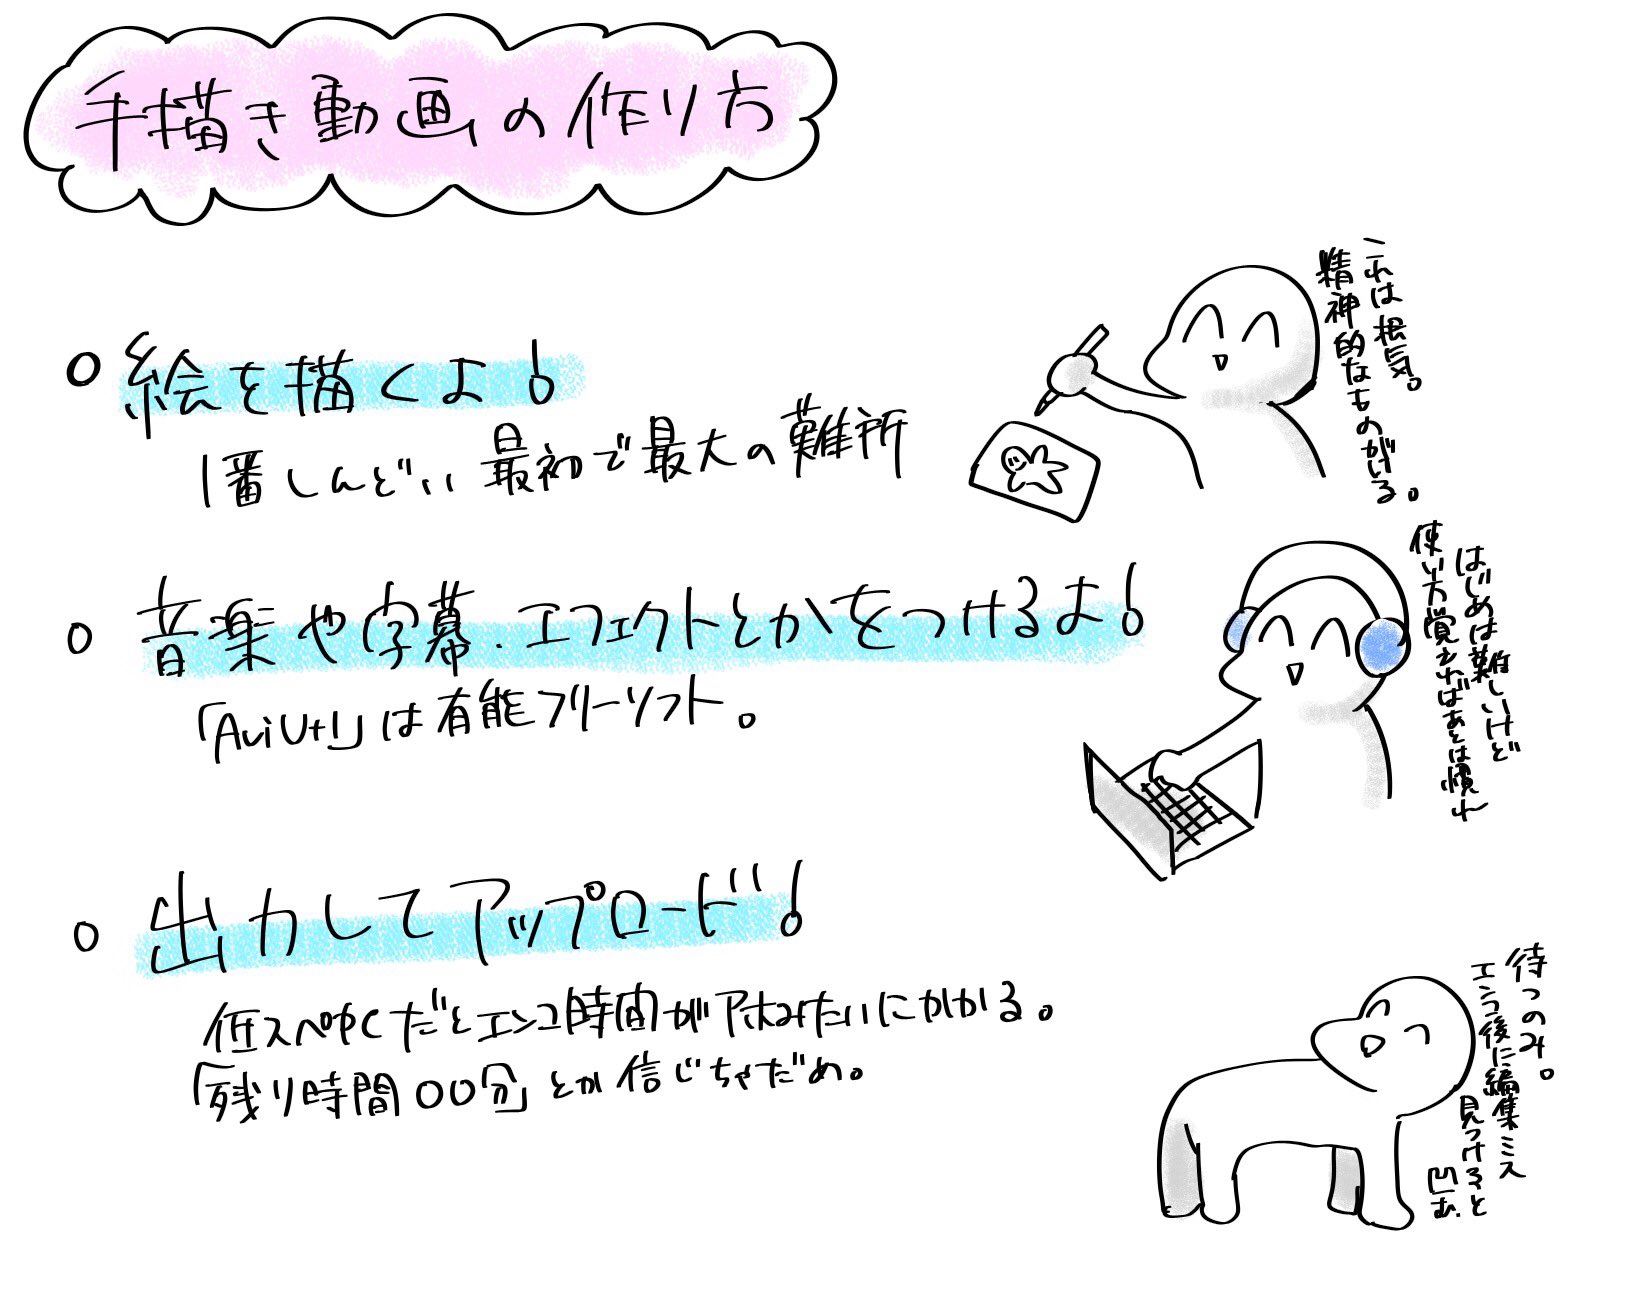 手描き動画の作り方
○絵を描くよ!
1番しんどい最初で最大の難所
これは根気。
精神的なものがいる。
○音楽や字幕.エフェクトとかをつけるよ!
「AviUtl」は有能フリーソフト。
はじめは難しいけど
使い方覚えればあとは慣れ
○出力してアップロード!
低スペPCだとエンコ時間がアホみたいにかかる。
「残り時間〇〇分」とか信じちゃだめ。
待つのみ。
エンコ後に編集ミス
見つけると
凹む.